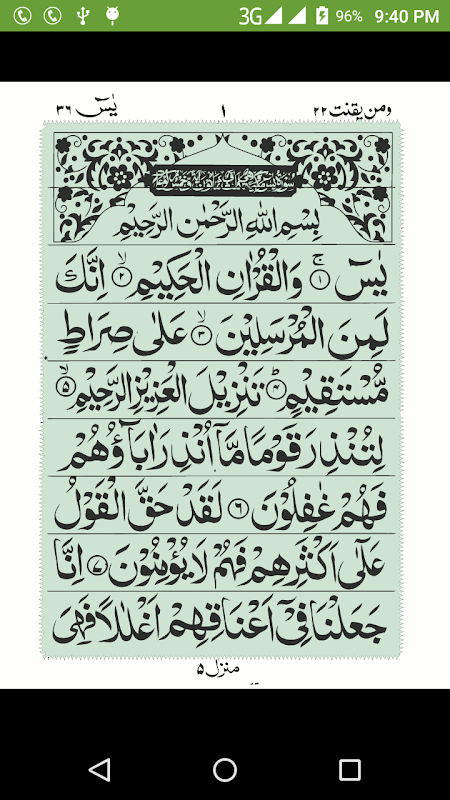 3G 96% 9:40 PM
ومن یقنت ۲۲ ۱ یٰسٓ ۳۶
بِسْمِ اللهِ الرَّحْمٰنِ الرَّحِیْمِ
یٰسٓ ۚ﴿۱﴾ وَالْقُرْاٰنِ الْحَكِیْمِ ۙ﴿۲﴾ اِنَّكَ
لَمِنَ الْمُرْسَلِیْنَ ۙ﴿۳﴾ عَلٰی صِرَاطٍ
مُّسْتَقِیْمٍ ؕ﴿۴﴾ تَنْزِیْلَ الْعَزِیْزِ الرَّحِیْمِ ۙ﴿۵﴾
لِتُنْذِرَ قَوْمًا مَّاۤ اُنْذِرَ اٰبَآؤُهُمْ
فَهُمْ غٰفِلُوْنَ ﴿۶﴾ لَقَدْ حَقَّ الْقَوْلُ
عَلٰۤی اَكْثَرِهِمْ فَهُمْ لَا یُؤْمِنُوْنَ ﴿۷﴾ اِنَّا
جَعَلْنَا فِیْۤ اَعْنَاقِهِمْ اَغْلٰلًا فَهِیَ
منزل ۵